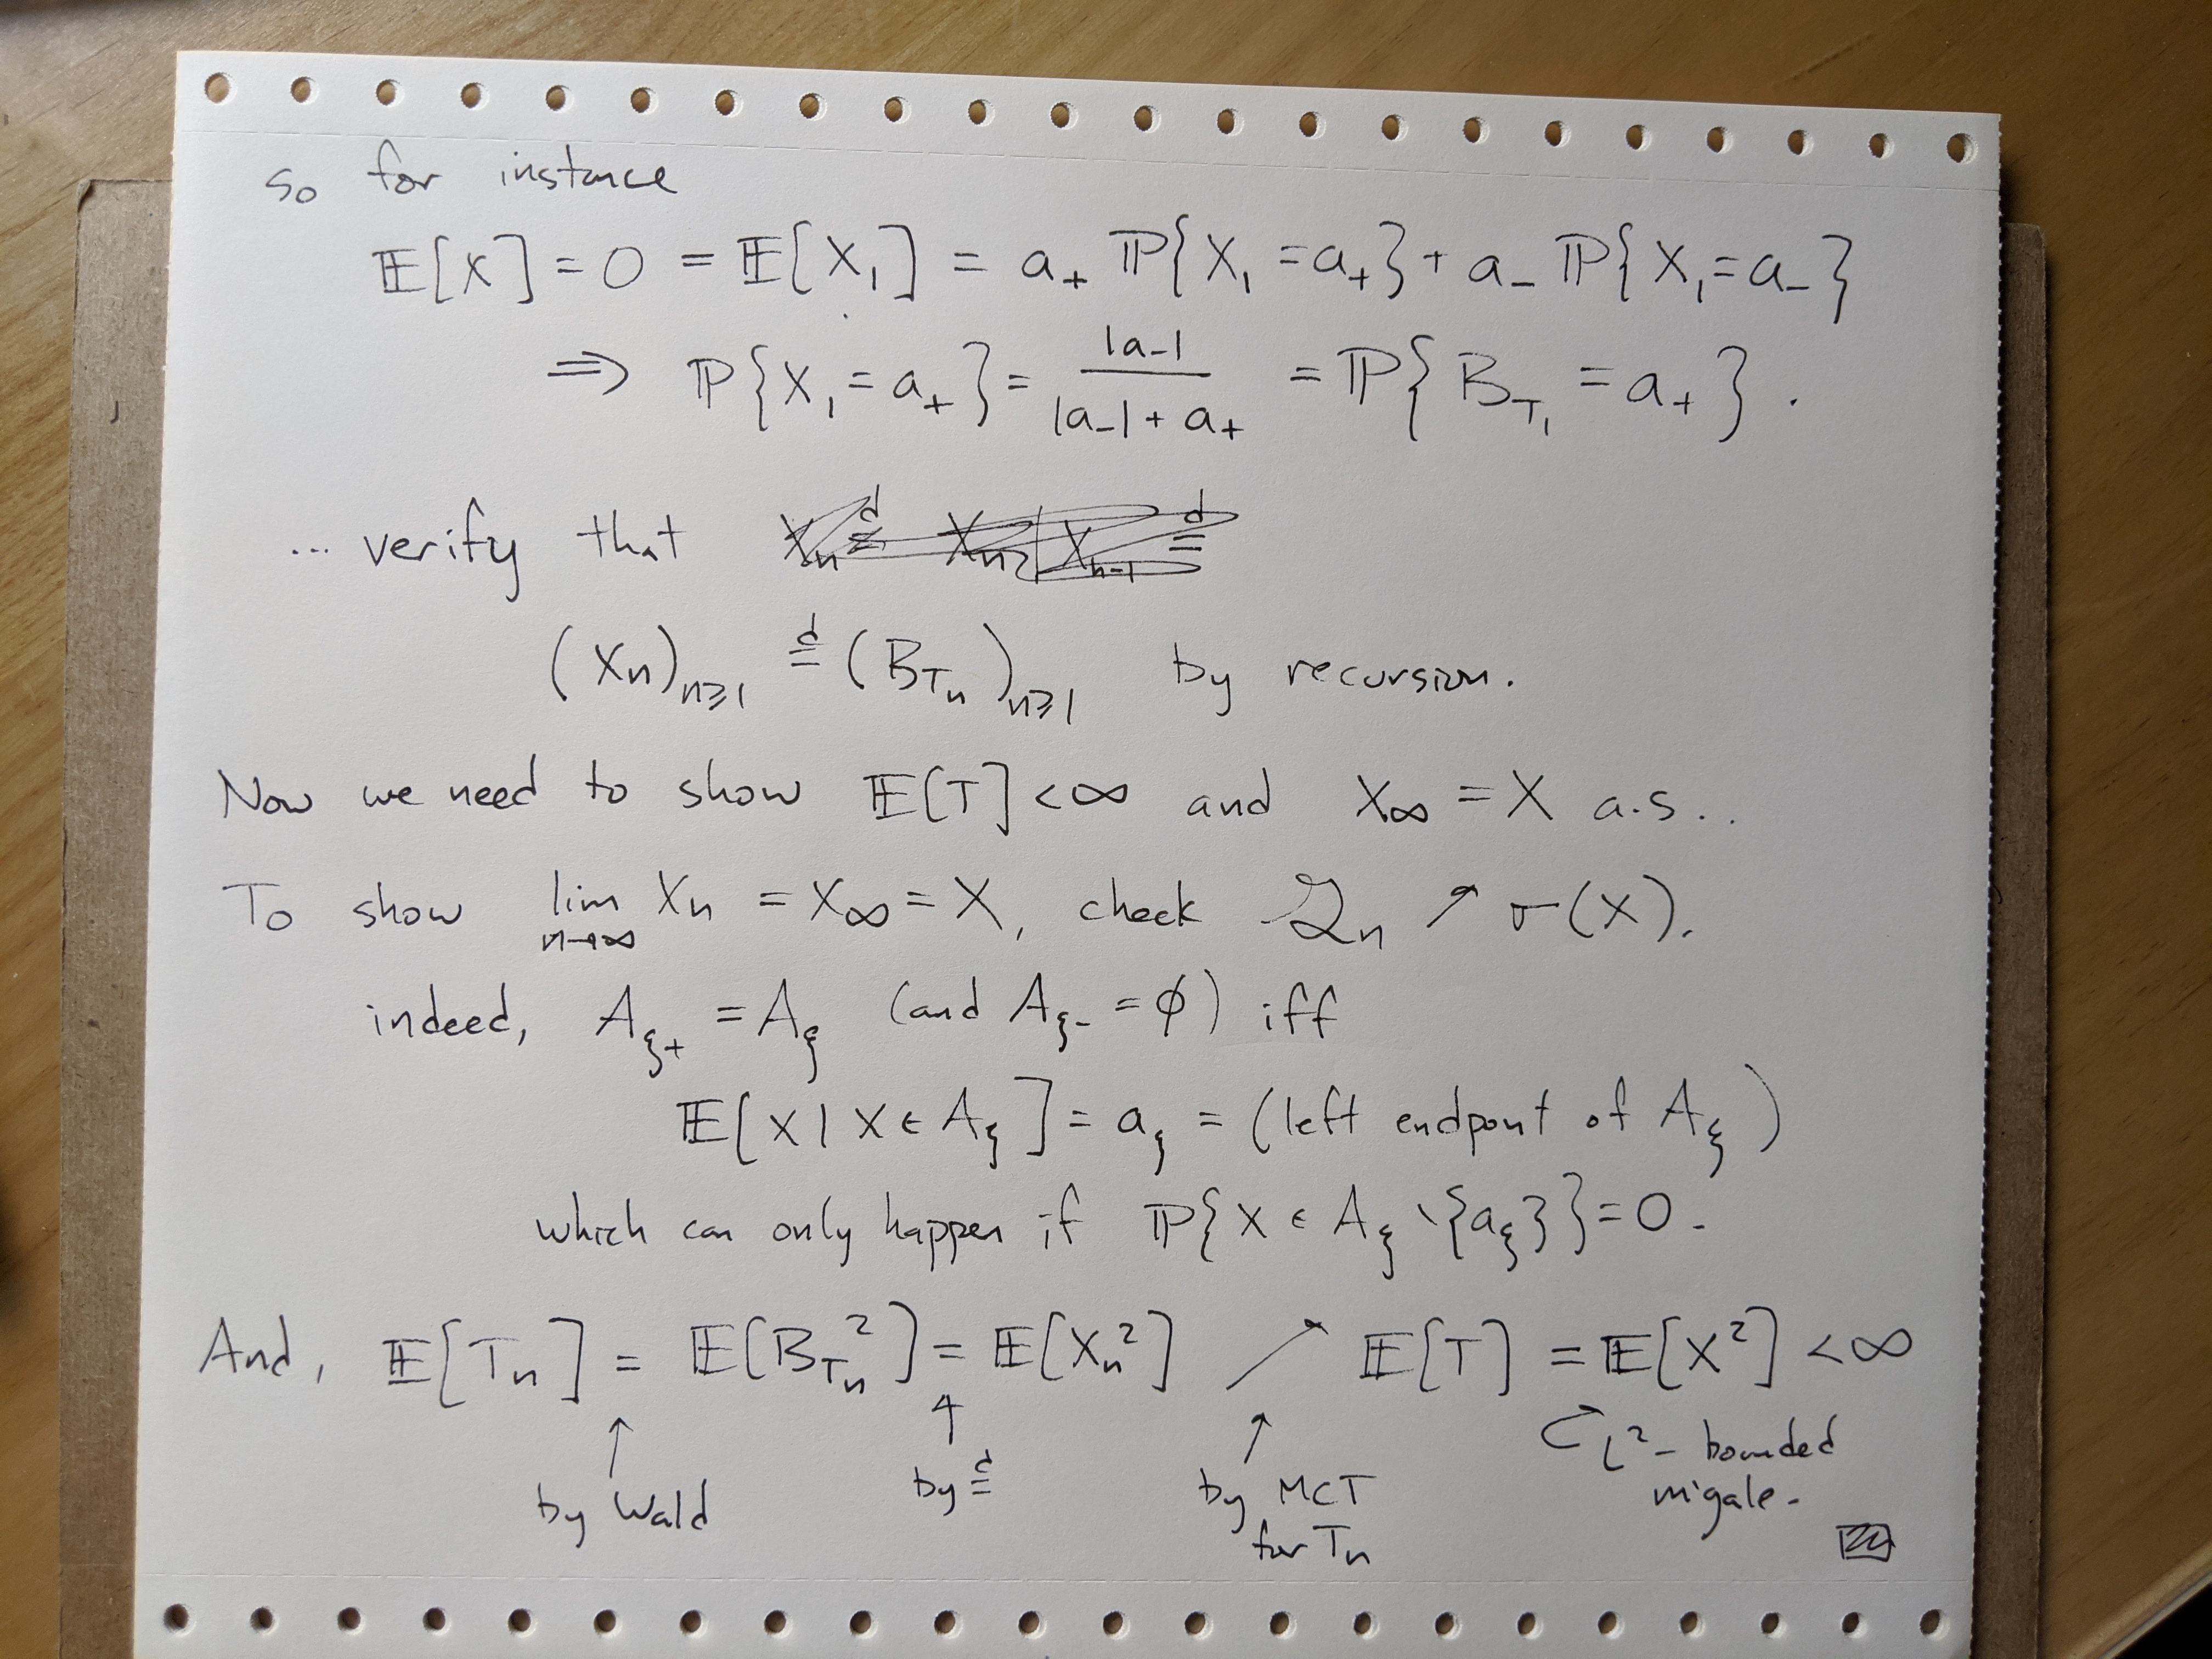 so for instance
𝔼[X] = 0 = 𝔼[X₁] = a₊ ℙ{X₁ = a₊} + a₋ ℙ{X₁ = a₋}
⟹ ℙ{X₁ = a₊} = |a₋| / (|a₋| + a₊) = ℙ{B_{T₁} = a₊}.
... verify that
(Xₙ)_{n≥1} =ᵈ (B_{Tₙ})_{n≥1} by recursion.
Now we need to show 𝔼[T] < ∞ and X_∞ = X a.s..
To show lim_{n→∞} Xₙ = X_∞ = X, check 𝒢ₙ ↗ σ(X).
indeed, A_{ξ+} = A_ξ (and A_{ξ-} = ∅) iff
𝔼[X | X ∈ A_ξ] = a_ξ = (left endpont of A_ξ)
which can only happen if ℙ{X ∈ A_ξ \ {a_ξ}} = 0.
And, 𝔼[Tₙ] = 𝔼[B_{Tₙ}²] = 𝔼[Xₙ²] ↗ 𝔼[T] = 𝔼[X²] < ∞
↑ by Wald
↑ by =ᵈ
↑ by MCT for Tₙ
L²-bounded m'gale.